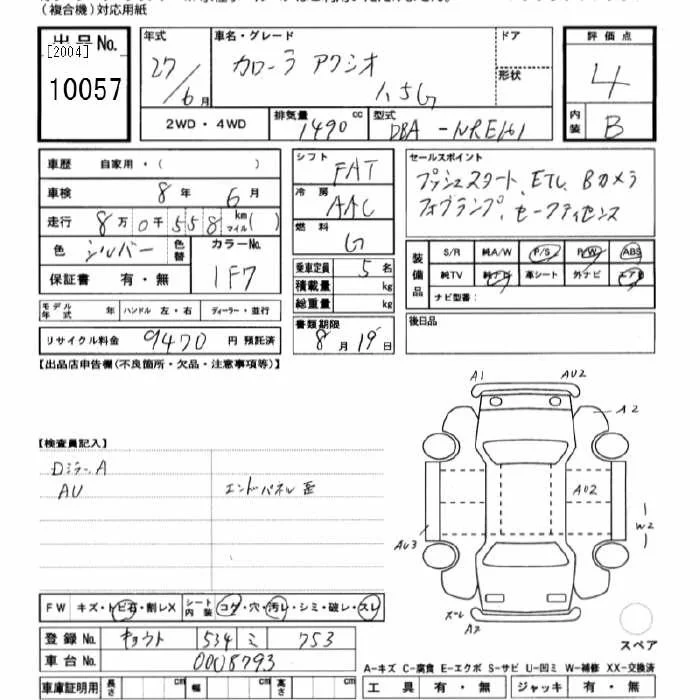 (複合機)対応用紙
出品No.
[2004]
10057
年式
27/6月
車名・グレード
カローラ アクシオ
1.5G
ドア
形状
評価点
4
内装
B
2WD・4WD
排気量
1490 cc
型式
DBA-NRE161
車歴 自家用・( )
車検 8年 6月
走行 8万0千558 km マイル( )
色 シルバー
色替
カラーNo.
1F7
保証書 有・無
モデル年式 年
ハンドル 左・右
ディーラー・並行
リサイクル料金 9470円 預託済
シフト
FAT
冷房
AAC
燃料
G
乗車定員 5名
積載量 kg
総重量 kg
書類期限
8月19日
セールスポイント
プッシュスタート、ETC、Bカメラ
フォグランプ、セーフティセンス
装備品
S/R
純A/W
P/S
P/W
ABS
純TV
純ナビ
革シート
外ナビ
エアB
ナビ型番:
後日品
【出品店申告欄(不良箇所・欠品・注意事項等)】
【検査員記入】
DミラーA
AU
エンドパネル歪
A1
AU2
A2
AU2
W2
AU3
スレ
A2
スペア
FW キズ・トビ石・割レX
シート内装 コゲ・穴・汚レ・シミ・破レ・スレ
登録No. キョウト 534 ミ 753
車台No. 0008793
車庫証明用 長さ cm 幅 cm 高さ cm
A-キズ C-腐食 E-エクボ S-サビ U-凹ミ W-補修 XX-交換済
工具 有・無
ジャッキ 有・無